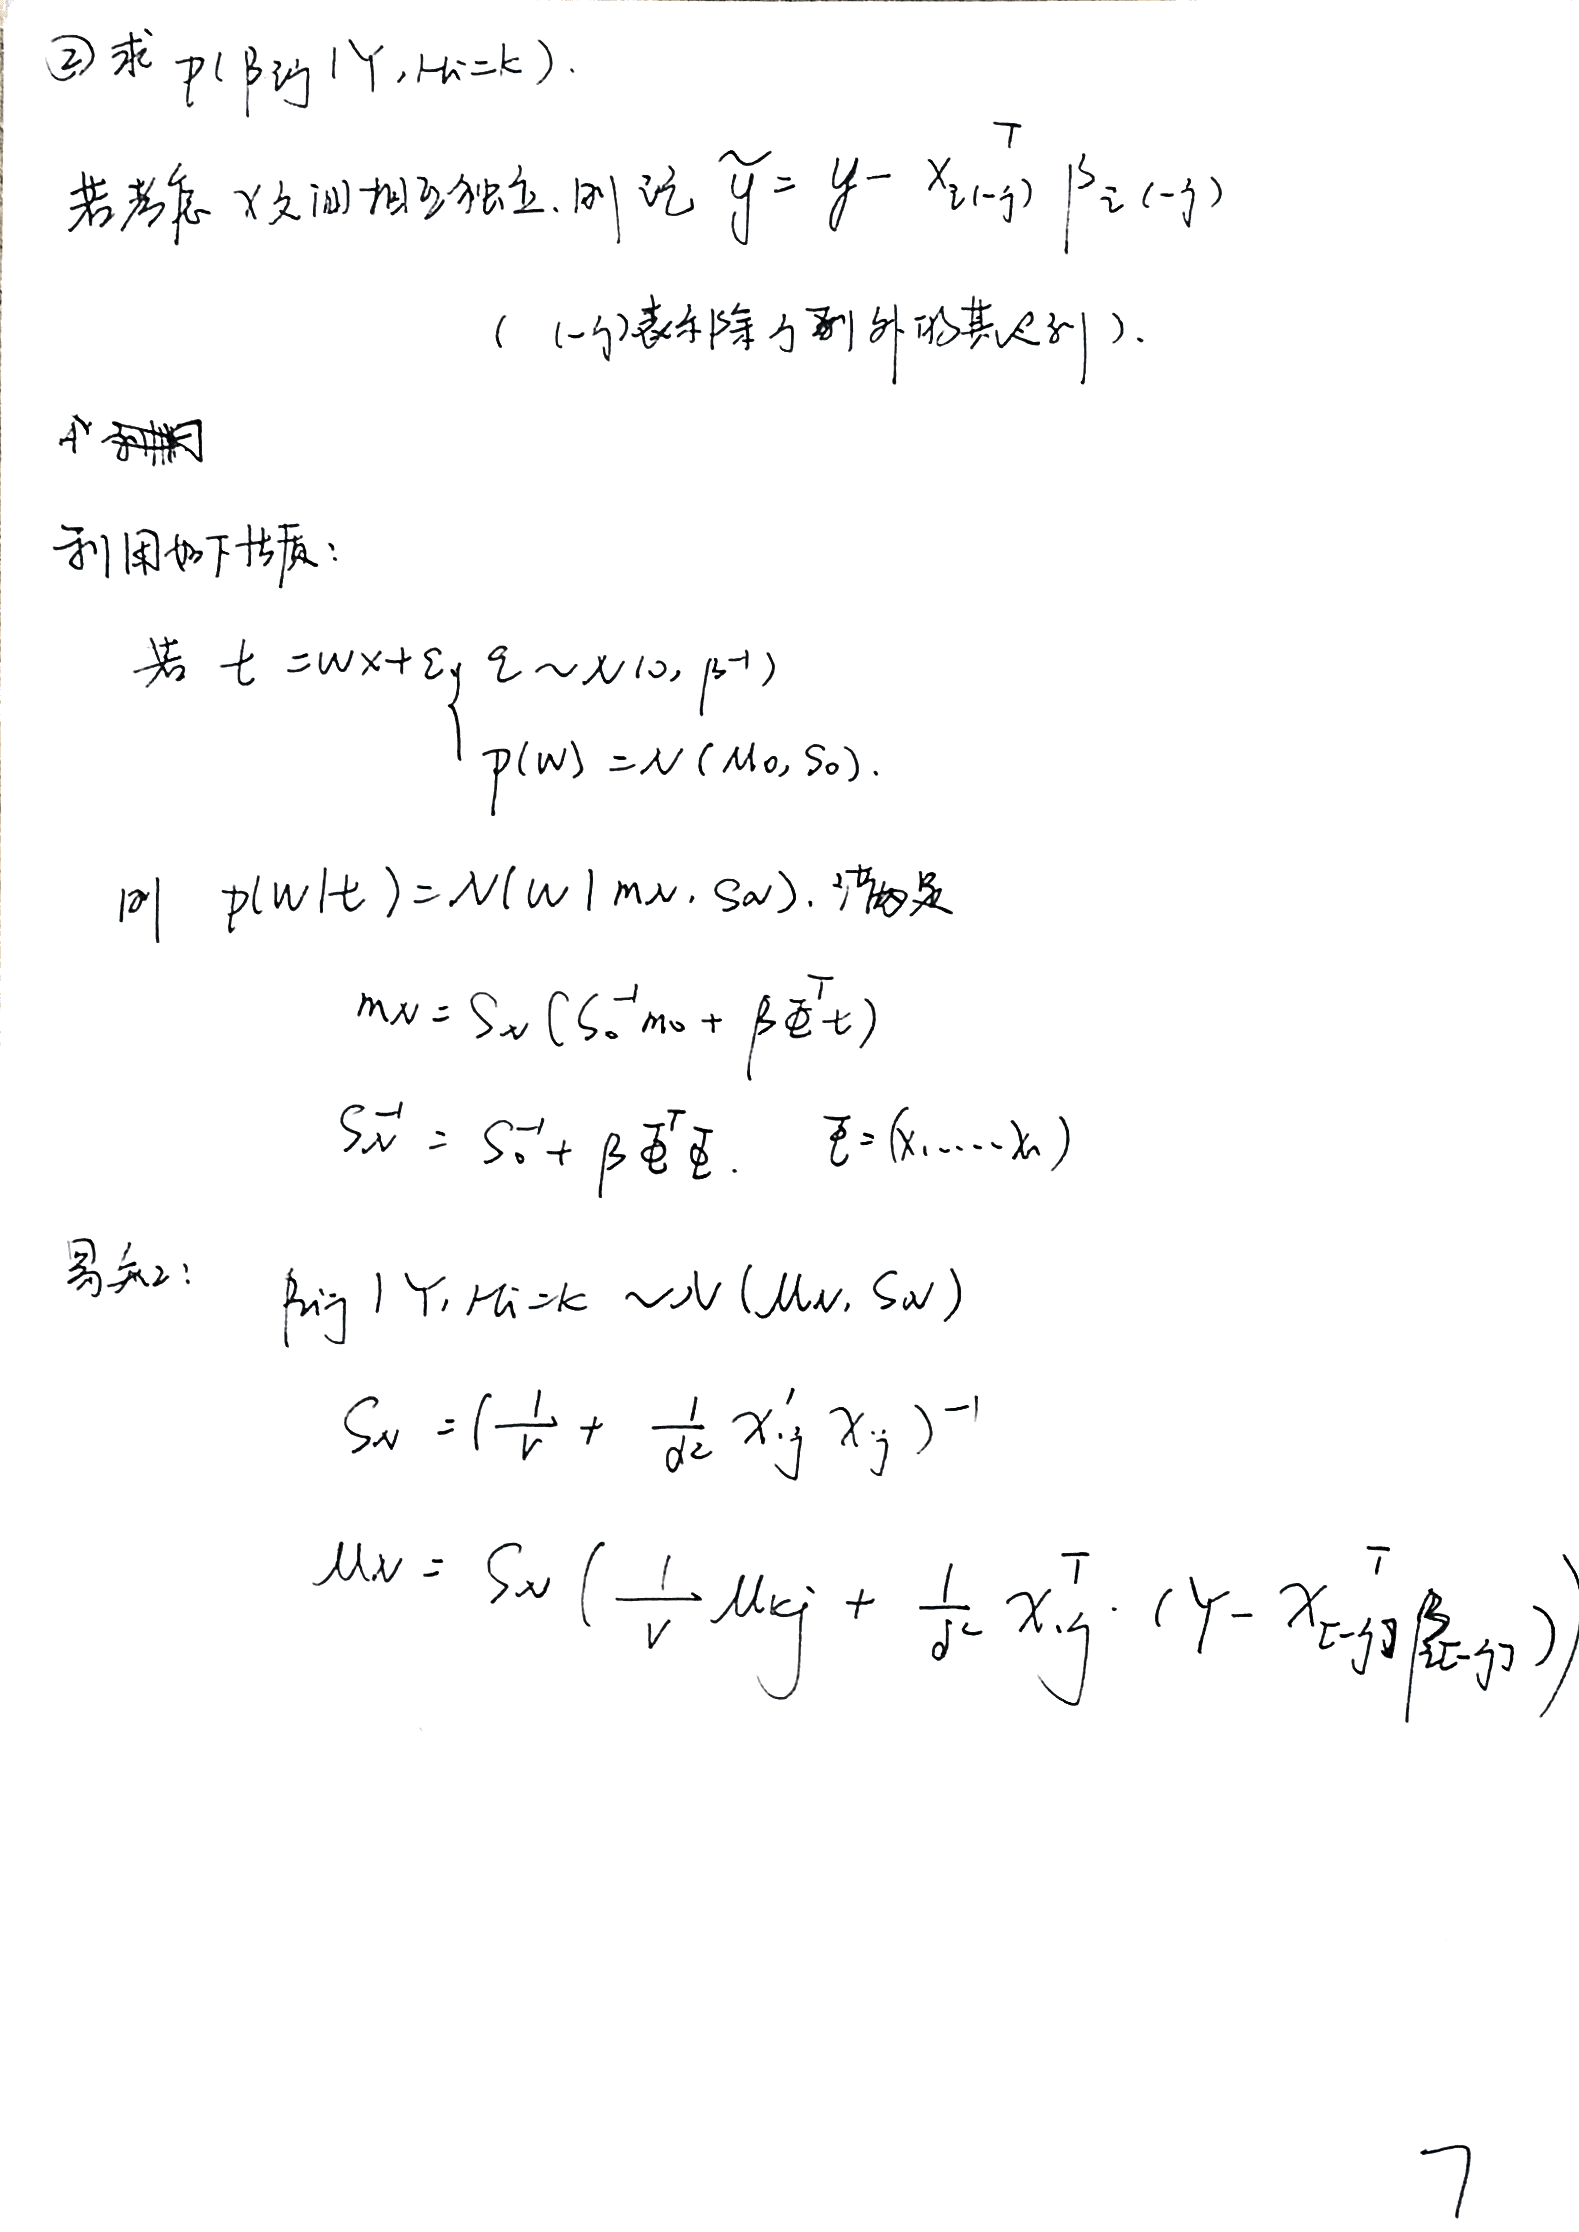 ② 求 p(βij | Y, Hi=k).
若考虑 X 之间相互独立. 则记 ỹ = y - X_{i(-j)}^T β_{i(-j)}
( (-j)表示除 j 列外的其它列 ).
利用如下性质:
若 t = wx+ε, { ε ~ N(0, β^{-1})
p(w) = N(M0, S0).
则 p(w|t) = N(w | mN, SN). 满足
mN = SN (S0^{-1} m0 + β Φ^T t)
SN^{-1} = S0^{-1} + β Φ^T Φ. Φ = (x1, ..... xn)
易知: βij | Y, Hi=k ~ N(μN, SN)
SN = (1/v + 1/σ² x'.j x.j)^{-1}
μN = SN ( 1/v μkj + 1/σ² x.j^T · (Y - X_{[-j]}^T β_{i[-j]}) )
7